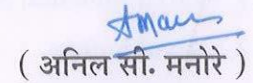 ( अनिल सी. मनोरे )